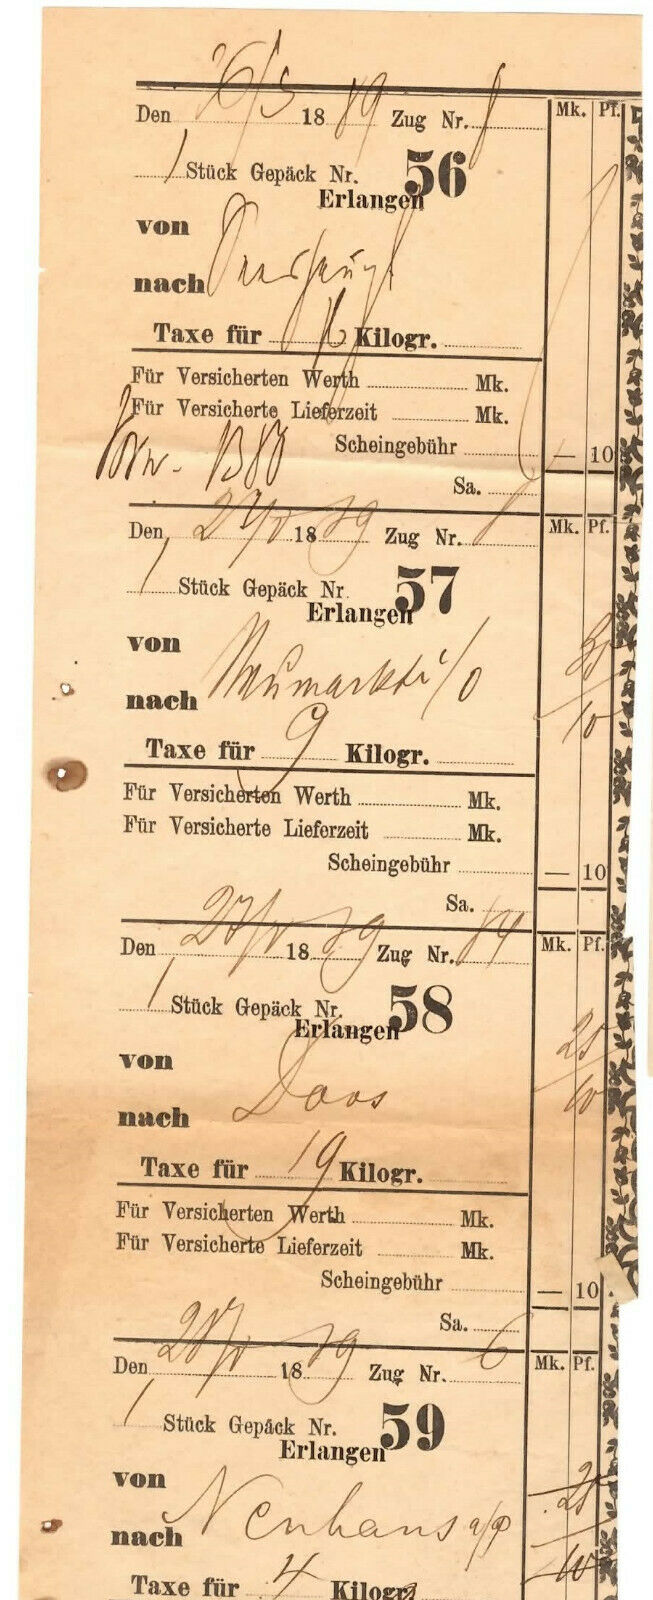 Den 26/5 1889 Zug Nr. 8 Mk. Pf.
1 Stück Gepäck Nr. 56
Erlangen
von
nach
Taxe für Kilogr.
Für Versicherten Werth Mk.
Für Versicherte Lieferzeit Mk.
Scheingebühr — 10
Sa.
Den 27/5 1889 Zug Nr. 8 Mk. Pf.
1 Stück Gepäck Nr. 57
Erlangen
von
nach Neumarkt i/O
10
Taxe für 9 Kilogr.
Für Versicherten Werth Mk.
Für Versicherte Lieferzeit Mk.
Scheingebühr — 10
Sa.
Den 27/5 1889 Zug Nr. 84 Mk. Pf.
1 Stück Gepäck Nr. 58
Erlangen
25
von
10
nach Doos
Taxe für 19 Kilogr.
Für Versicherten Werth Mk.
Für Versicherte Lieferzeit Mk.
Scheingebühr — 10
Sa.
Den 28/5 1889 Zug Nr. 6 Mk. Pf.
1 Stück Gepäck Nr. 59
Erlangen
von
25
nach Neuhaus a/P
10
Taxe für 4 Kilogr.